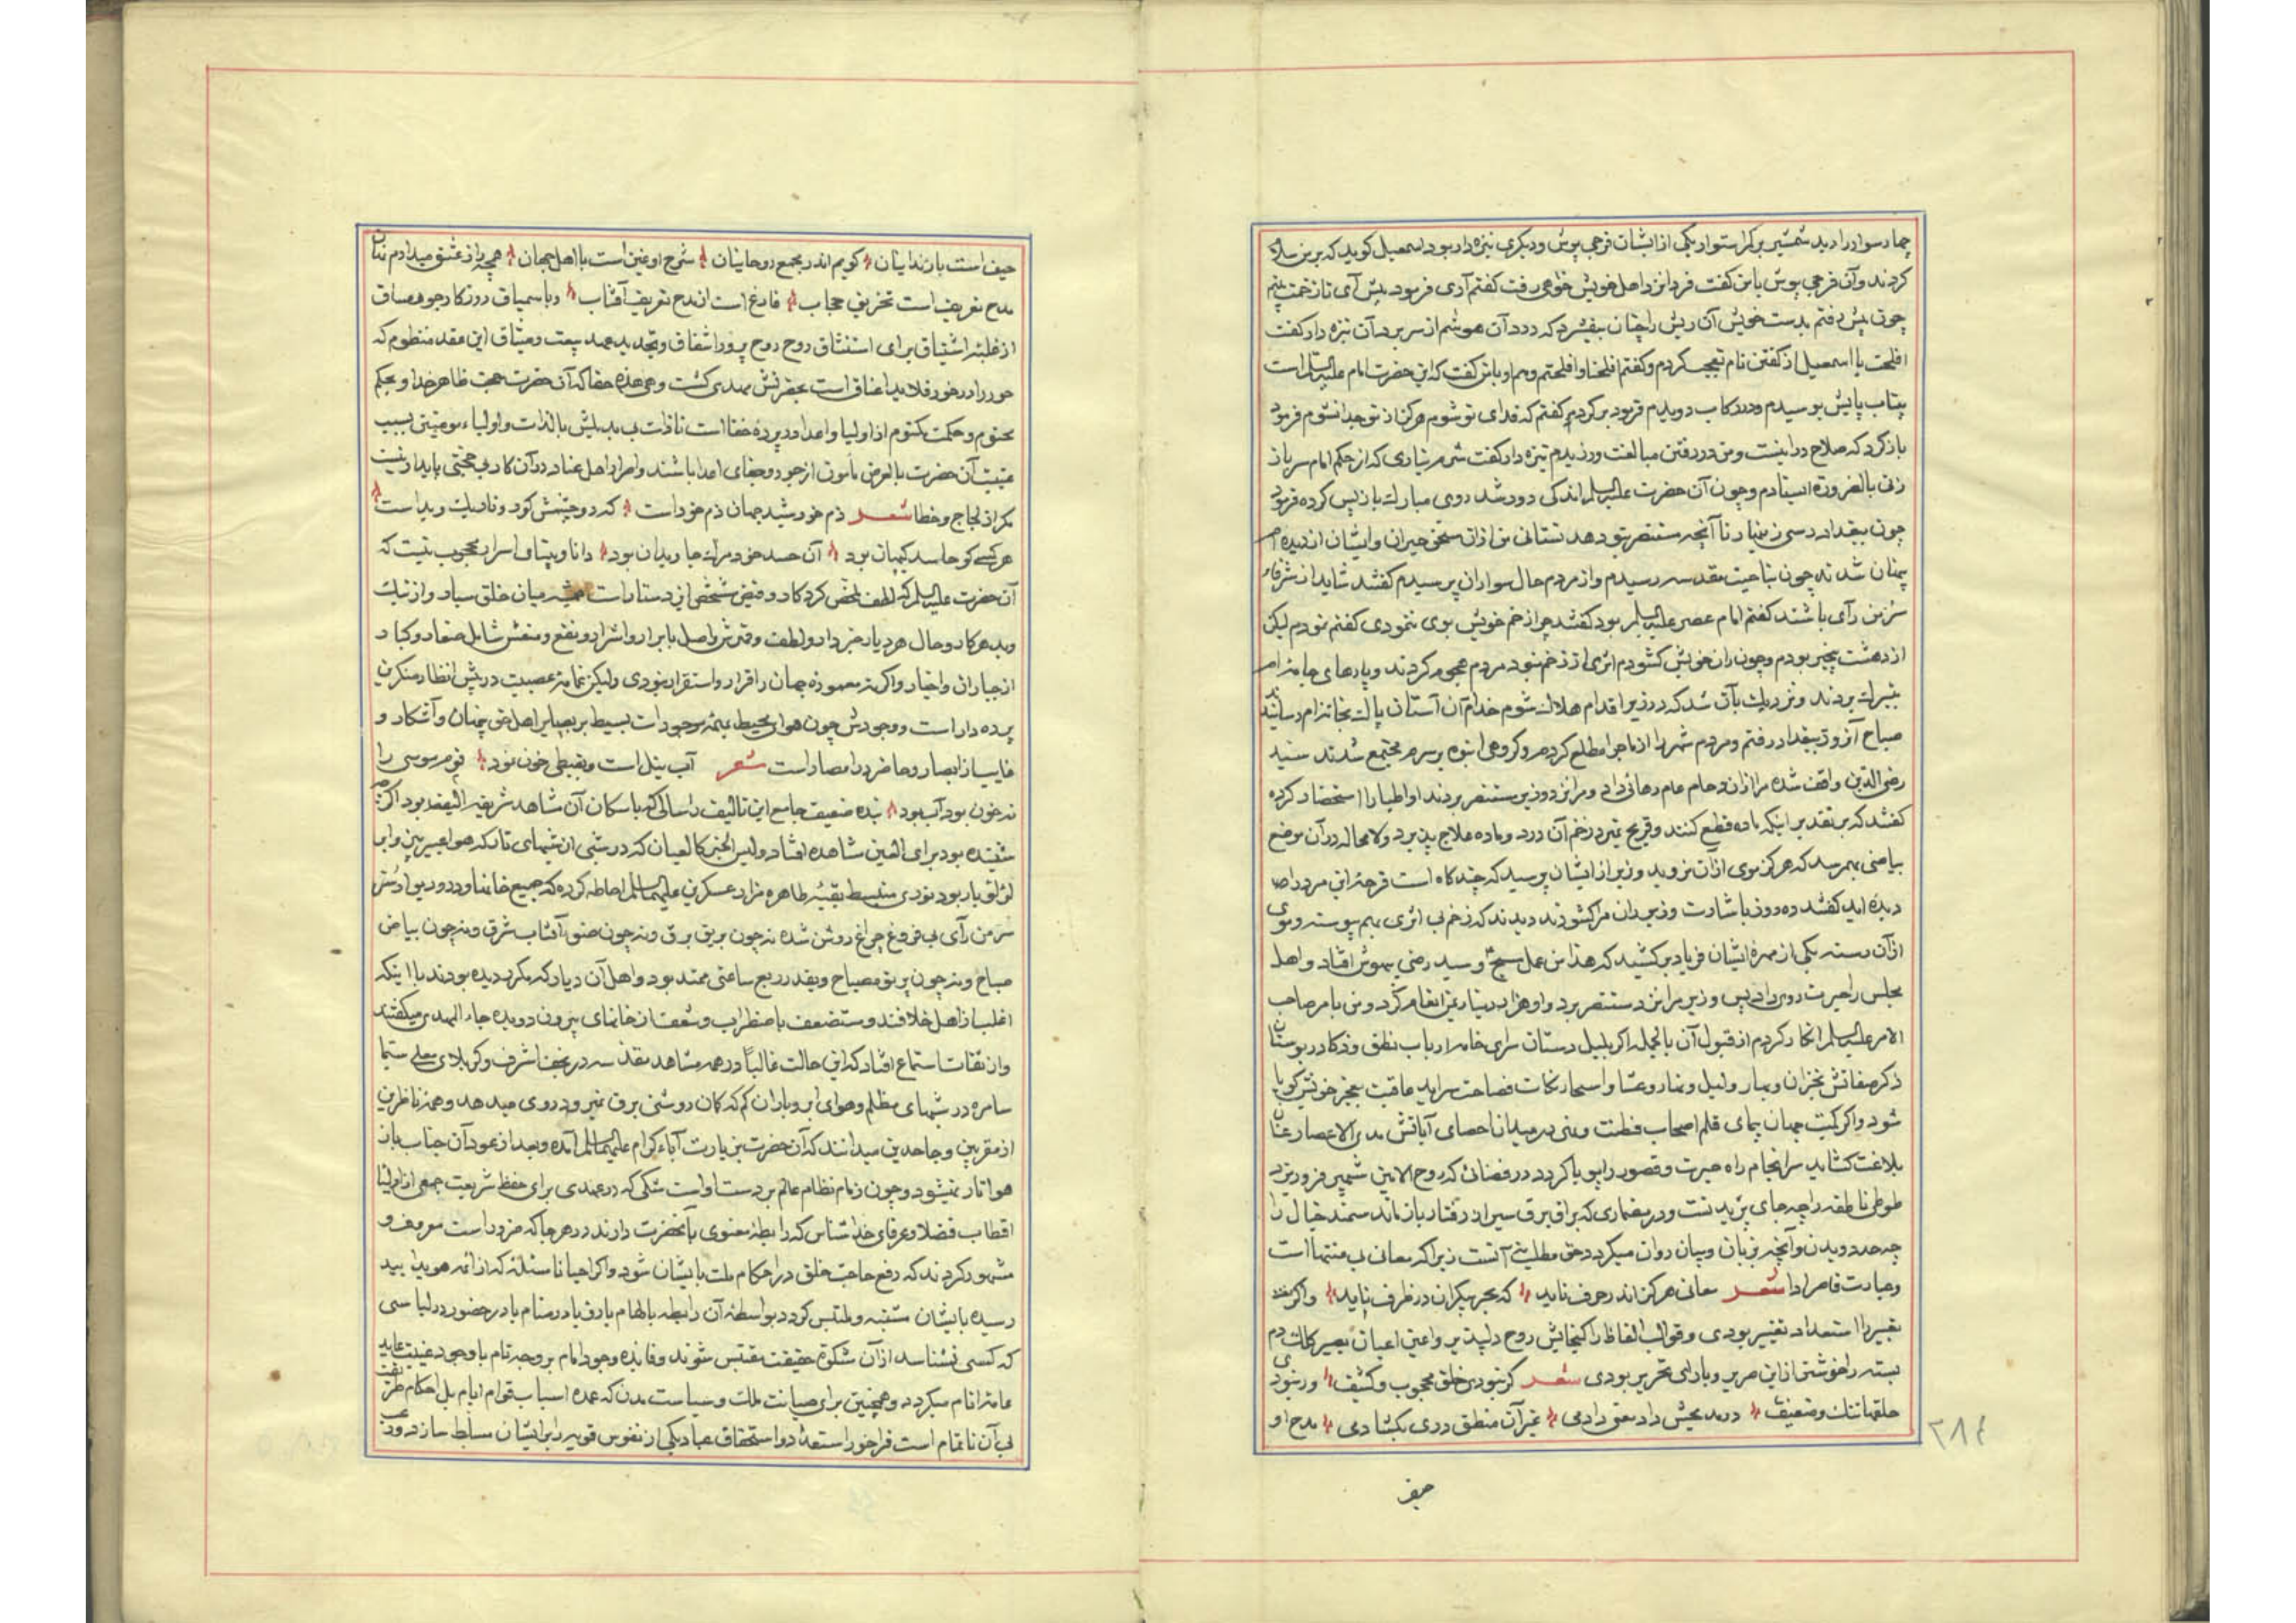 چهار سوار را دید شمشیر بر کمر استوار یکی از ایشان فرجی پوش و دیگری نیزه دار بود اسمعیل کوید که بر من سلام
کردند و آن فرجی پوش با من کفت فردا نزد اهل خویش خواهی رفت کفتم آری فرمود پیش آی تا زخمت بینم
چون پیش رفتم بدست خویش آن ریش را چنان بیفشرد که درد آن هوشم از سر برد آن نیزه دار کفت
افلحت یا اسمعیل از کفتن نام تعجب کردم و کفتم افلحنا و افلحتم و هم او با من کفت که این حضرت امام علیه السلم است
بیتاب پایش بوسیدم و در رکاب دویدم فرمود برکرد کفتم که فدای تو شوم هرکز از تو جدا نشوم فرمود
بازکرد که صلاح در اینست و من در رفتن مبالغت ورزیدم نیزه دار کفت شرم نداری که از حکم امام سر باز
زنی بالضروره ایستادم و چون آن حضرت علیه السلم اندکی دور شد روی مبارک باز پس کرده فرمود
چون ببغداد رسی زنهار تا آنچه مستنصر بتو دهد نستانی من ازان سخن حیران و ایشان از دیده ام
پنهان شدند چون بناحیت مقدسه رسیدم و از مردم حال سواران پرسیدم کفتند شاید از شرفاء
سر من رآی باشند کفتم امام عصر علیه السلم بود کفتند چرا زخم خویش بوی ننمودی کفتم نمودم لیکن
از دهشت بیخبر بودم و چون ران خویش کشودم اثری از زخم نبود مردم هجوم کردند و پارهای جامه ام
بتبرک بردند و نزدیک بآن شد که در زیر اقدام هلاک شوم خدام آن آستان پاک بخانه ام رسانیدند
صباح آنروز ببغداد رفتم و مردم شهر را از ماجرا مطلع کردم و کروهی انبوه بر سرم مجتمع شدند سید
رضی الدین واقف شده مرا ازان زحام عام رهائی داد و مرا نزد وزیر مستنصر بردند او اطبا را استحضار کرده
کفتند که بر تقدیر اینکه ماده قطع کنند و قریح نمیرد زخم آن درد و ماده علاج پذیرد ولامحاله در آن موضع
بیاضی بهم رسد که هرکز موی ازان نروید وزیر از ایشان پرسید که چند کاه است قرحهٔ این مرد را
دیده اید کفتند ده روز باشارت وزیر ران مرا کشودند دیدند که زخم بی اثری بهم پیوسته و موی
از آن رسته یکی از مهرهٔ ایشان فریاد برکشید که هذا من عمل مسیح و سید رضی بیهوش افتاد و اهل
مجلس را حیرت روی داد پس وزیر مرا نزد مستنصر برد و او هزار دینار بمن انعام کرد و من بامر صاحب
الامر علیه السلم انکار کردم از قبول آن بالجمله اکر بلبل دستان سرای خامهٔ ارباب نطق و ذکا در بوستان
ذکر صفاتش بخزان و بهار و لیل و نهار و عشا و اسحار نکات فصاحت سراید عاقبت بعجز خویش کویا
شود و اکر کمیت جهان پیمای قلم اصحاب فطنت و نهی در میدان احصای آیاتش مدی الاعصار عنان
بلاغت کشاید سرانجام راه حیرت و قصور را پویا کردد در فضائی که روح الامین شهپر فرو ریزد
طوطی ناطقه را چه جای پریدنست و در مضماری که براق برق سیر از رفتار باز ماند سمند خیال را
چه حد دویدن و آنچه بزبان و بیان روان میکردد حق مطلب نه آنست زیرا که معانی بی منتها است
و عبارت قاصر ادا شعر معانی هرکز اندر حرف ناید که بحر بیکران در ظرف ناید و اکر
تعبیر را استعداد تفسیر بودی و قوالب الفاظ را کنجایش روح دلپذیر و اعین اعیان بصیر کلک دم
بسته را خوشتر از این صریر و یارای تحریر بودی شعر کر نبودی خلق محجوب و کثیف ور نبودی
حلقها تنک و ضعیف در مدیحش داد معنی دادمی غیر آن منطق دری بکشادمی مدح او
حیف
۲۸۴
حیف است با زندانیان کویم اندر مجمع روحانیان شرح او غبن است با اهل جهان همچو راز عشق میدارم نهان
مدح تعریف است تخریق حجاب فارغ است از مدح تعریف آفتاب و با سیاق روزکار
از غلبهٔ اشتیاق برای استنشاق روح روح پرور اشفاق و تجدید عهد بیعت و میثاق این عقد منظوم که
حور را در خور قلاید اعناق است بحضرتش مهدی کشت و هی هذه حقا که آن حضرت حجت ظاهر خدا و بحکم
محتوم و حکمت مکتوم از اولیا و اعدا در پرده خفا است تا ذات بی بدیلش بالذات و اولیاء مؤمنین بسبب
غیبت آن حضرت بالعرض مأمون از جور و جفای اعدا باشند و اصرار اهل عناد در آن کار بی حجتی پایدار نیست
مکر از لجاج و خطا شعر ذم خورشید جهان ذم خود است که دو چشمش کور و تاریک و بد است
هر کسی کو حاسد کیهان بود آن حسد خود مرک جاویدان بود دانا و بینای اسرار محجوب نیست که
آن حضرت علیه السلم که لطف محض کردکار و فیض مشخص از دستارت همیشه میان خلق سیار و از نیک
و بد هر کار و حال هر دیار خبردار و لطف و قهرش واصل بابرار و اشرار و نفع و منعش شامل صغار و کبار
از جباران و اخیار و اکر نه معمورهٔ جهان را قرار و استقرار نبودی ولیکن غمامهٔ عصبیت در پیش انظار منکرین
پرده دار است و وجودش چون هوای محیط بهمهٔ موجودات بسیط بر بصایر اهل حق پنهان و آشکار و
غایب از ابصار و حاضر در امصار است شعر آب نیل است و بقبطی خون نمود قوم موسی را
نه خون بود آب بود بنده ضعیف جامع این تالیف را سالی که با سکان آن مشاهد شریفه الیفه بود اکر چه
شنیده بود برای العین مشاهده افتاد و لیس الخبر کالعیان که در شبی از شبهای تار که هوا عبیر بیز و ابر
لؤلؤ بار بود نوری منبسط بقبهٔ طاهرهٔ مزار عسکرین علیهما السلم احاطه کرده که جمیع خانها و در و دیوار
سر من رآی بی فروغ چراغ روشن شده نه چون بریق برق و نه چون ضوء آفتاب شرق و نه چون بیاض
صباح و نه چون پرتو مصباح و بقدر ربع ساعتی ممتد بود و اهل آن دیار که مکرر دیده بودند با اینکه
اغلب از اهل خلافند و مستضعف باضطراب و شعف از خانهای بیرون دویده جاء المهدی میکفتند
و از ثقات استماع افتاد که این حالت غالباً در همه مشاهد مقدسه در نجف اشرف و کربلای معلی سیما
سامره در شبهای مظلم و هوای ابر و باران کم که کان روشنی برق نمیرود روی میدهد و همه ناظرین
از مقربین و جاحدین میدانند که آن حضرت بزیارت آباء کرام علیهم السلم آمده و بعد از عود آن جناب باز
هوا تار میشود و چون زمام نظام عالم بر دست اوست شکی که در عهدی برای حفظ شریعت جمعی از اولیا
اقطاب فضلا و عرفای خدا شناس که رابطهٔ معنوی بآنحضرت دارند در هرجا که ضرور است معروف و
مشهور کردند که رفع حاجت خلق در احکام ملت بایشان شود و اکر احیانا مسئله که از ائمه هدی بعید
رسیده بایشان مشتبه و ملتبس کردد بواسطهٔ آن رابطه بالهام یا در منام یا در حضور در لباسی
که کسی نشناسد از آن مشکوة حقیقت مقتبس شوند و فایده وجود امام بر وجه تام با وجود غیبت عاید
عامهٔ انام میکردد و همچنین برای صیانت ملت و سیاست مدن که عمده اسباب قوام ایام بل احکام
بی آن ناتمام است فراخور استعداد و استحقاق عباد یکی از نفوس قویه را بر ایشان مسلط سازد